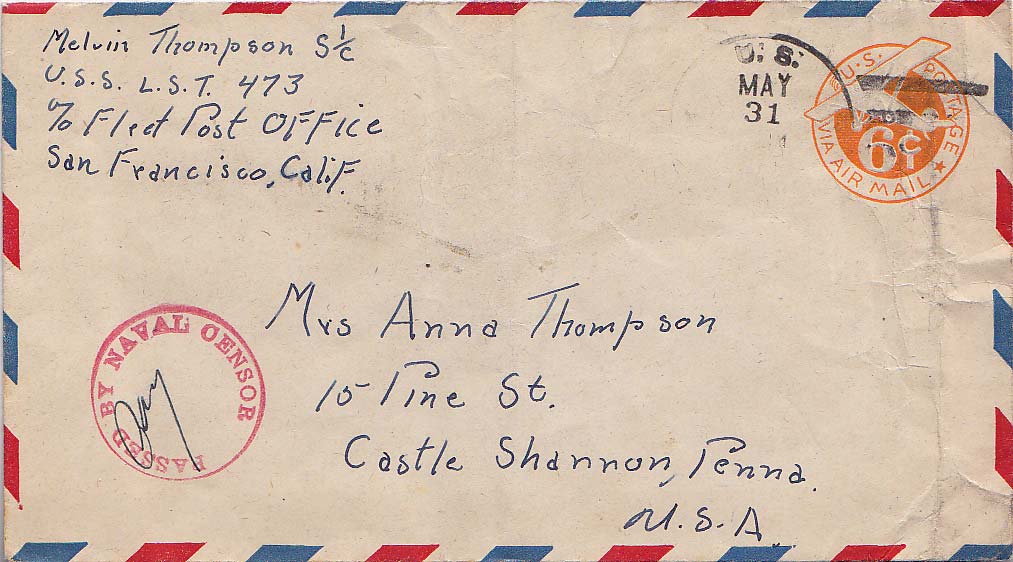 Melvin Thompson S 1/c
U.S.S. L.S.T. 473
c/o Fleet Post OFFice
San Francisco, Calif.
U. S.
MAY
31
U.S. POSTAGE
6¢
VIA AIR MAIL
PASSED BY NAVAL CENSOR
Mrs Anna Thompson
15 Pine St.
Castle Shannon, Penna.
U.S.A.